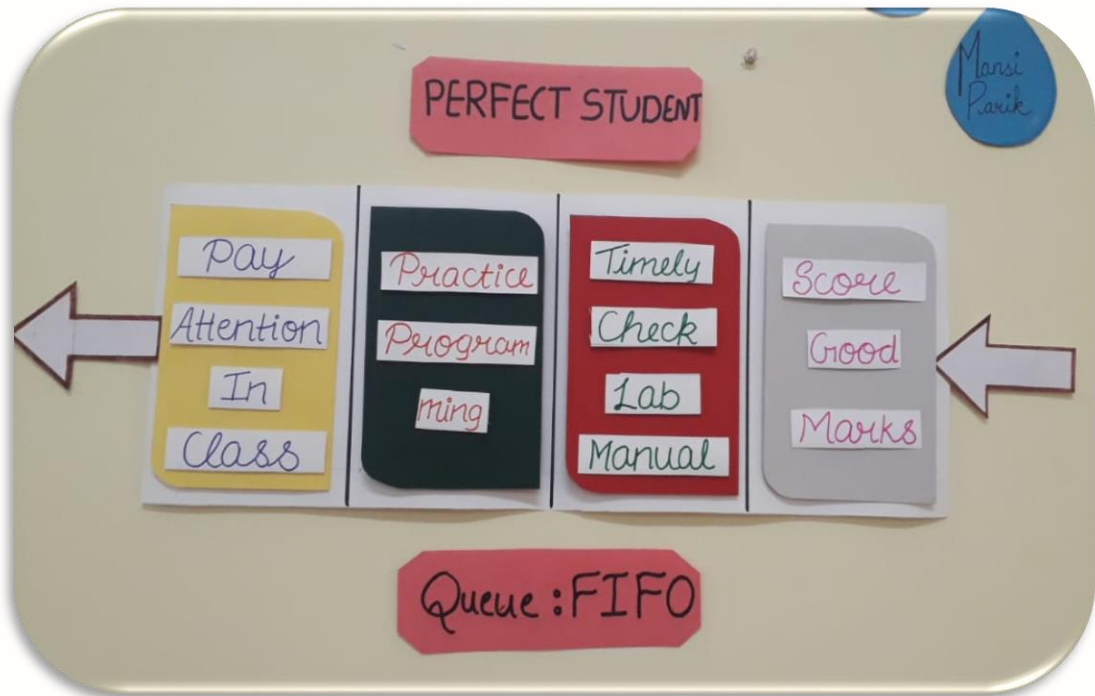 PERFECT STUDENT
Mansi
Parik
Pay
Attention
In
Class
Practice
Program
ming
Timely
Check
Lab
Manual
Score
Good
Marks
Queue : FIFO